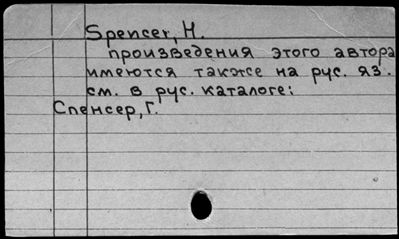 Spencer, H.
произведения этого автора
имеются также на рус. яз.
см. в рус. каталоге:
Спенсер, Г.